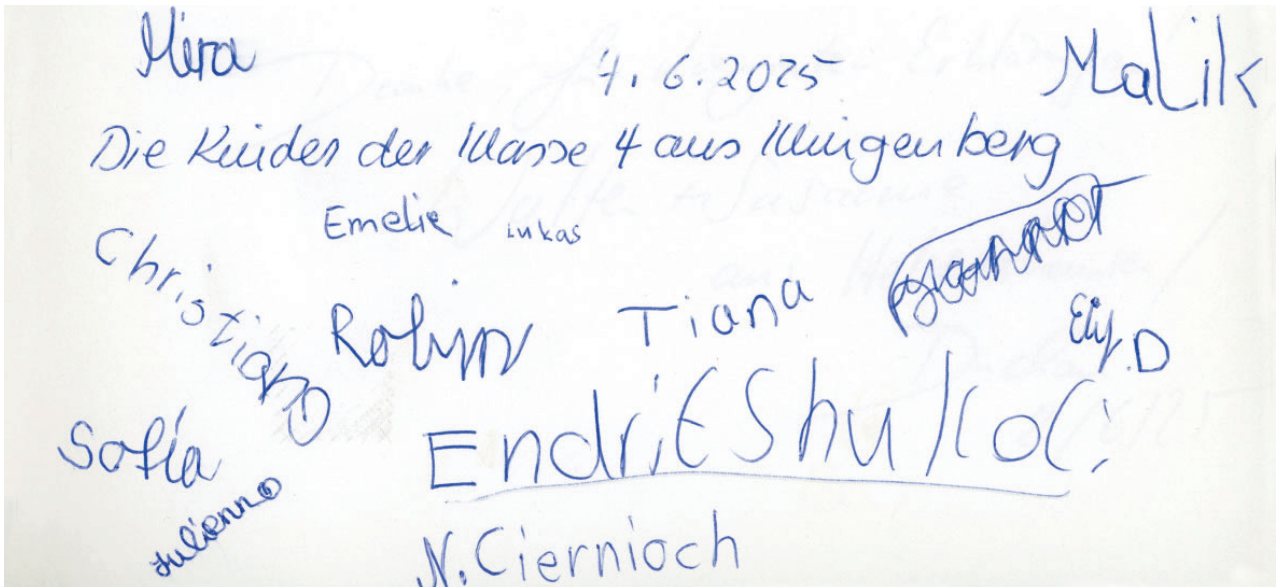 Mira
4.6.2025
MaLik
Die Kinder der Klasse 4 aus Klingenberg
Emelie
Lukas
Christiano
Robin
Tiana
Elif.D
Sofia
Endrit Shulkoci
Julienno
N.Ciernioch